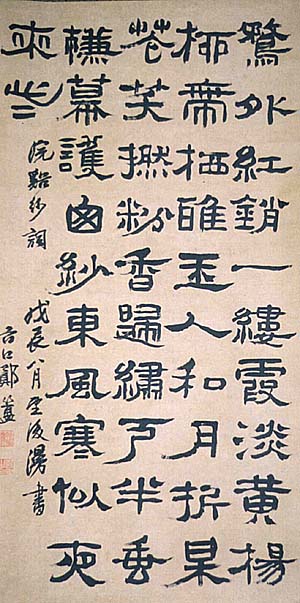 鶩外紅銷一縷霞淡黃楊
桺帶栖雅玉人和月折某
花笑撚粉香歸繡戶半垂
幕護囪紗東風寒似夜
來些
浣谿紗詞 戊辰八月 後 書
谷口鄭簠